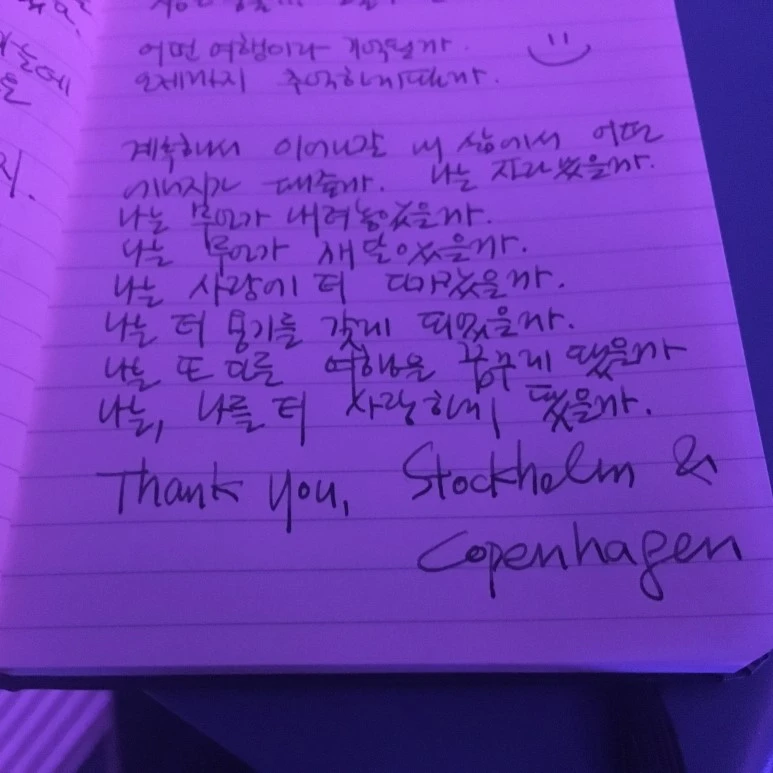 어떤 여행이라 기억될까.
언제까지 추억하게 될까.
계속해서 이어나갈 내 삶에서 어떤
에너지가 돼줄까. 나는 자라났을까.
나는 무언가 내려놓았을까.
나는 무언가 깨달았을까.
나는 사랑에 더 다가갔을까.
나는 더 용기를 갖게 되었을까.
나는 또 다른 여행을 꿈꾸게 됐을까
나는, 나를 더 사랑하게 됐을까.
Thank you, Stockholm &
Copenhagen